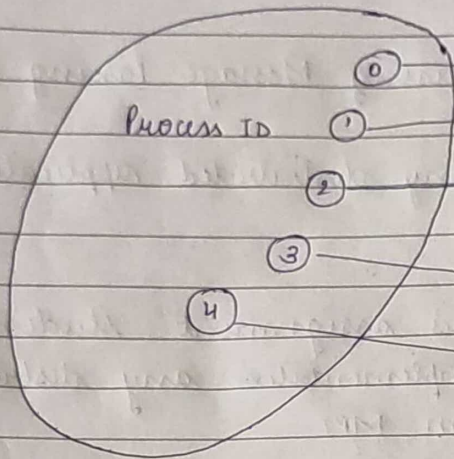 0
Process ID
1
2
3
4